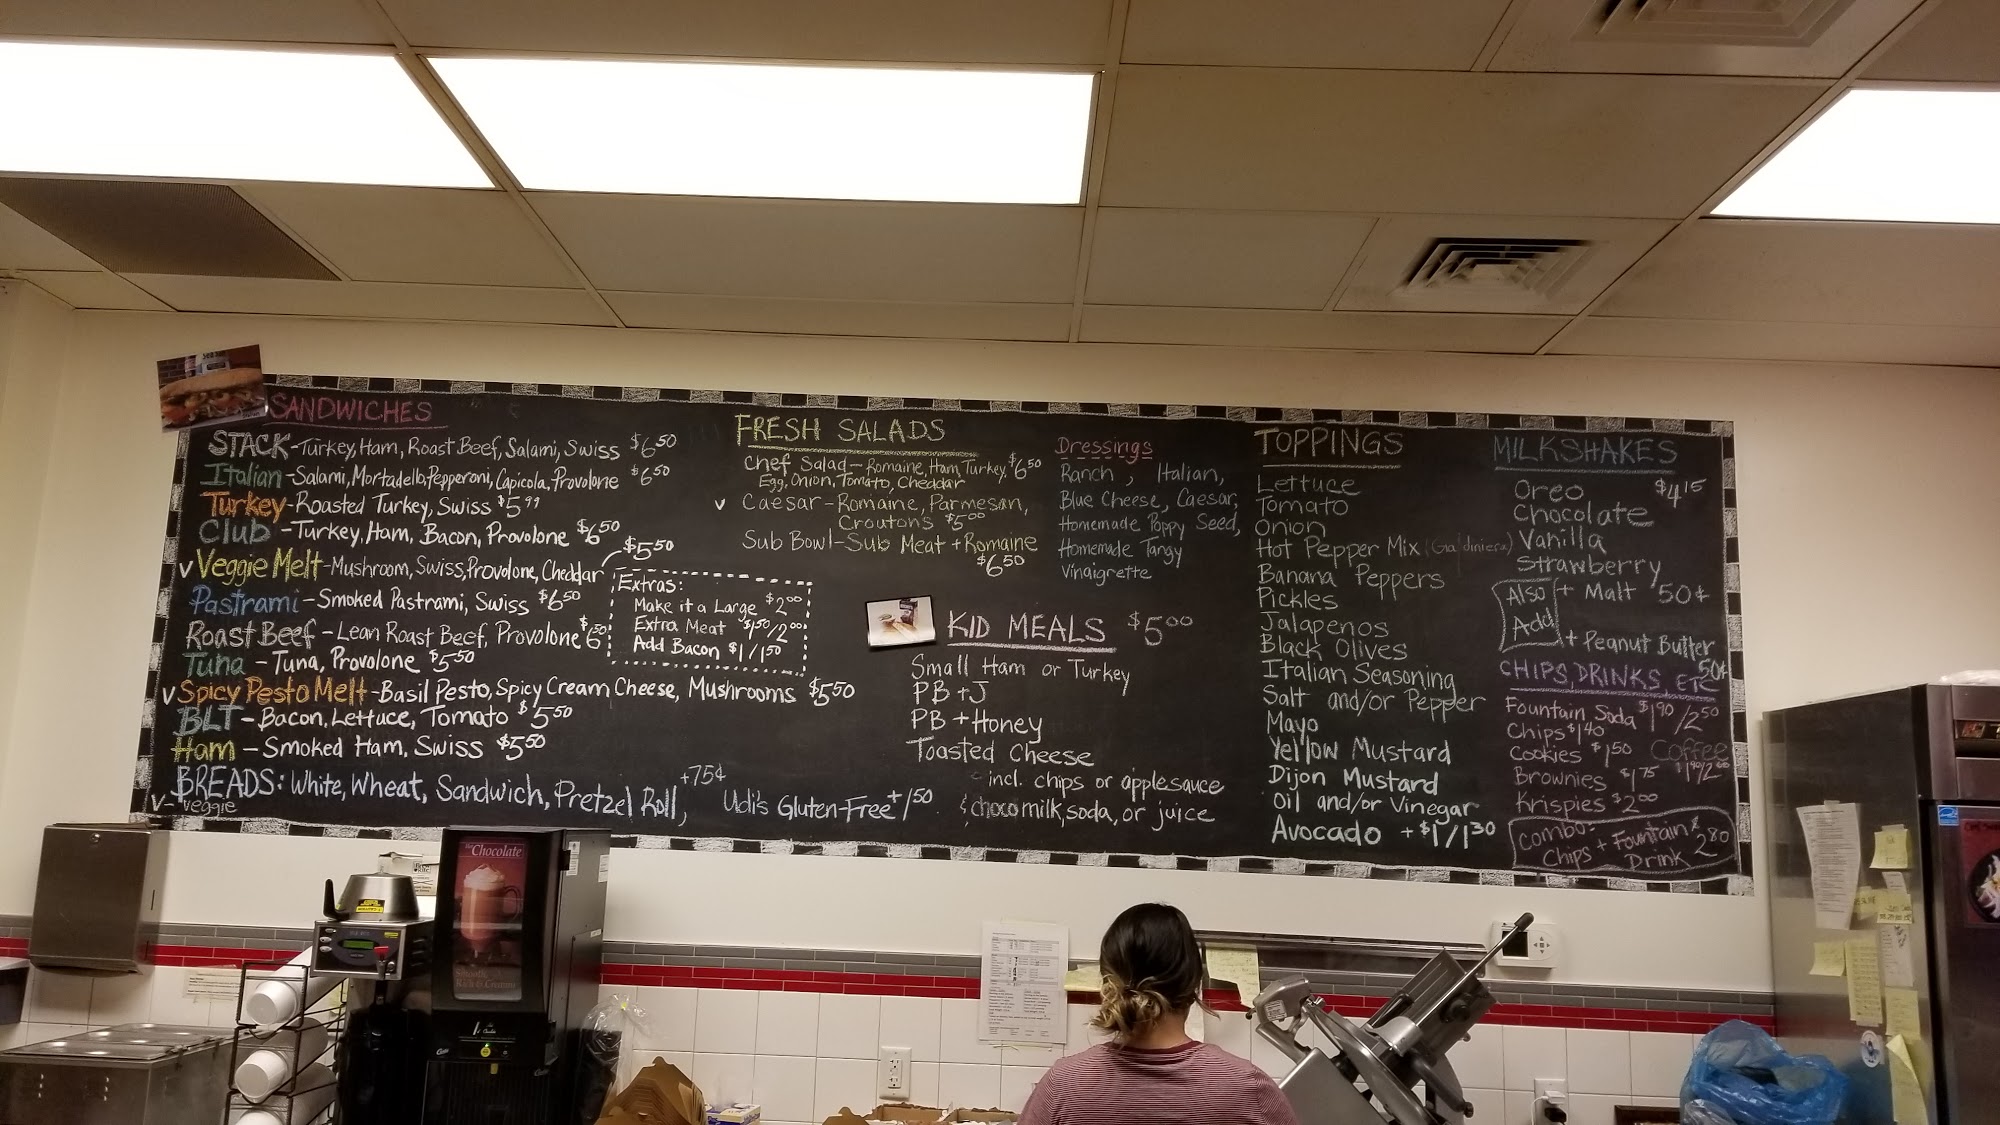 SANDWICHES
STACK-Turkey, Ham, Roast Beef, Salami, Swiss $6.50
Italian-Salami, Mortadella, Pepperoni, Capicola, Provolone $6.50
Turkey-Roasted Turkey, Swiss $5.99
Club-Turkey, Ham, Bacon, Provolone $6.50
v Veggie Melt-Mushroom, Swiss, Provolone, Cheddar $5.50
Pastrami-Smoked Pastrami, Swiss $6.50
Roast Beef-Lean Roast Beef, Provolone $6.50
Tuna-Tuna, Provolone $5.50
v Spicy Pesto Melt-Basil Pesto, Spicy Cream Cheese, Mushrooms $5.50
BLT-Bacon, Lettuce, Tomato $5.50
Ham-Smoked Ham, Swiss $5.50
BREADS: White, Wheat, Sandwich, Pretzel Roll, +75¢ Udi's Gluten-Free +1.50
V-Veggie
Extras:
Make it a Large $2.00
Extra Meat $1.50/2.00
Add Bacon $1/1.50
FRESH SALADS
Chef Salad-Romaine, Ham, Turkey, $6.50
Egg, Onion, Tomato, Cheddar
v Caesar-Romaine, Parmesan,
Croutons $5.00
Sub Bowl-Sub Meat + Romaine
$6.50
Dressings
Ranch, Italian,
Blue Cheese, Caesar,
Homemade Poppy Seed,
Homemade Tangy
Vinaigrette
KID MEALS $5.00
Small Ham or Turkey
PB+J
PB+Honey
Toasted Cheese
- incl. chips or applesauce
& choco milk, soda, or juice
TOPPINGS
Lettuce
Tomato
Onion
Hot Pepper Mix (Giardiniera)
Banana Peppers
Pickles
Jalapenos
Black Olives
Italian Seasoning
Salt and/or Pepper
Mayo
Yellow Mustard
Dijon Mustard
Oil and/or Vinegar
Avocado +$1/1.30
MILKSHAKES
Oreo $4.15
Chocolate
Vanilla
Strawberry
Also Add
+ Malt 50¢
+ Peanut Butter
50¢
CHIPS, DRINKS, ETC
Fountain Soda $1.90/2.50
Chips $1.40
Cookies $1.50 Coffee
Brownies $1.75 $1.90/2.00
Krispies $2.00
Combo-
Chips + Fountain $2.80
Drink
Hot Chocolate